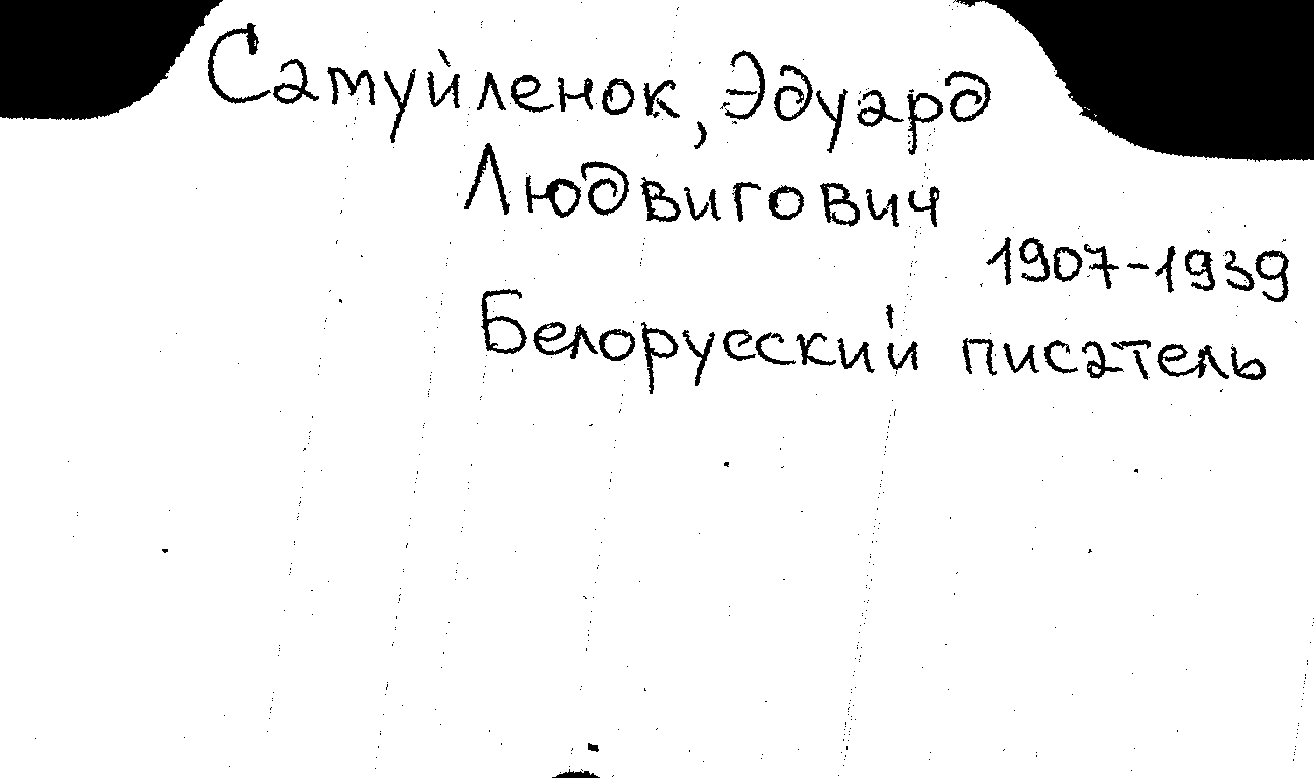 Самуйленок, Эдуард
Людвигович
1907-1939
Белорусский писатель